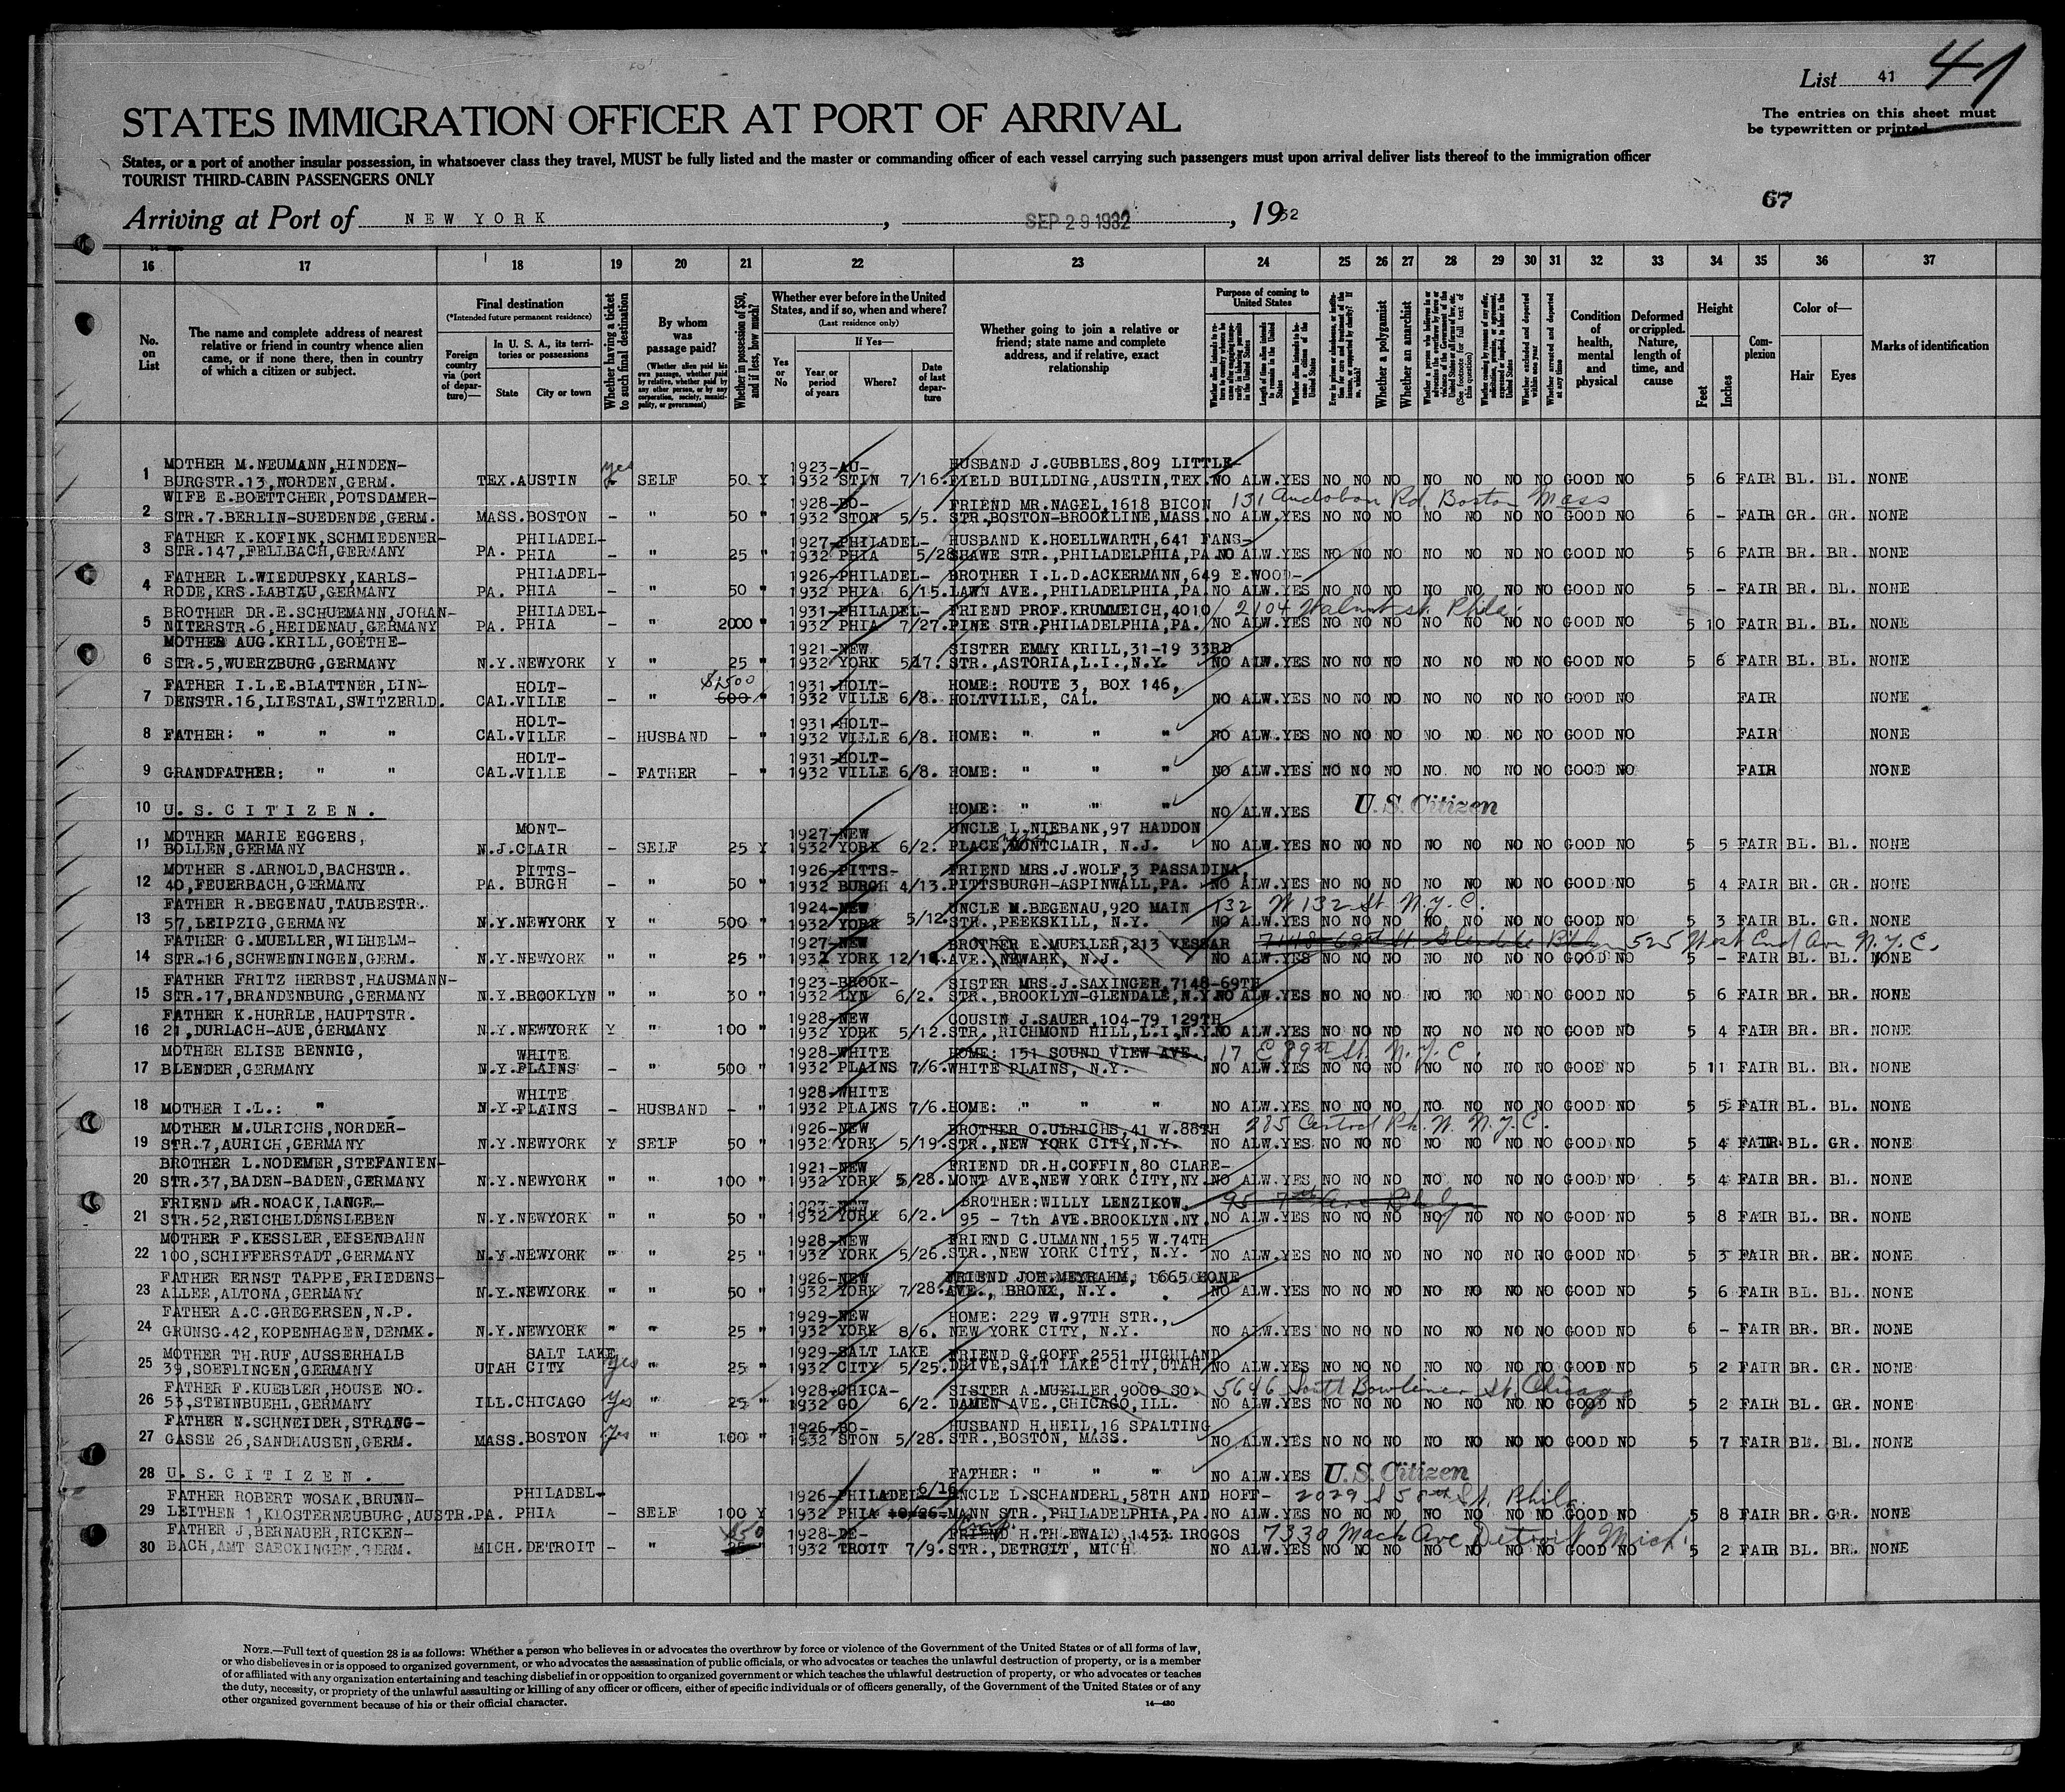 List 41 41
The entries on this sheet must
be typewritten or printed
STATES IMMIGRATION OFFICER AT PORT OF ARRIVAL
States, or a port of another insular possession, in whatsoever class they travel, MUST be fully listed and the master or commanding officer of each vessel carrying such passengers must upon arrival deliver lists thereof to the immigration officer
TOURIST THIRD-CABIN PASSENGERS ONLY
67
Arriving at Port of NEW YORK, SEP 29 1932, 1932
16 17 18 19 20 21 22 23 24 25 26 27 28 29 30 31 32 33 34 35 36 37
No. on List
The name and complete address of nearest relative or friend in country whence alien came, or if none there, then in country of which a citizen or subject.
Final destination
(*Intended future permanent residence)
Foreign country via (port of departure)—
In U. S. A., its territories or possessions
State City or town
Whether having a ticket to such final destination
By whom was passage paid?
(Whether alien paid his own passage, whether paid by relative, whether paid by any other person, or by any corporation, society, municipality, or government)
Whether in possession of $50, and if less, how much?
Whether ever before in the United States, and if so, when and where?
(Last residence only)
Yes or No
If Yes—
Year or period of years
Where?
Date of last departure
Whether going to join a relative or friend; state name and complete address, and if relative, exact relationship
Purpose of coming to United States
Length of time alien intends to remain in the United States
Whether a polygamist
Whether an anarchist
Whether excluded and deported within one year
Whether arrested and deported at any time
Condition of health, mental and physical
Deformed or crippled. Nature, length of time, and cause
Height
Feet Inches
Complexion
Color of—
Hair Eyes
Marks of identification
MOTHER M.NEUMANN,HINDEN- yes 1923-AU- HUSBAND J.GUBBLES,809 LITTLE-
1 BURGSTR.13,NORDEN,GERM. TEX.AUSTIN SELF 50 Y 1932 STIN 7/16. FIELD BUILDING,AUSTIN,TEX. NO ALW.YES NO NO NO NO NO NO NO GOOD NO 5 6 FAIR BL. BL. NONE
WIFE E.BOETTCHER,POTSDAMER- 1928-BO- FRIEND MR.NAGEL,1618 BICON 131 Audobon Rd. Boston Mass
2 STR.7.BERLIN-SUEDENDE,GERM. MASS.BOSTON - " 50 " 1932 STON 5/5. STR.,BOSTON-BROOKLINE,MASS. NO ALW.YES NO NO NO NO NO NO NO GOOD NO 6 - FAIR GR. GR. NONE
FATHER K.KOFINK,SCHMIEDENER- PHILADEL- 1927-PHILADEL- HUSBAND K.HOELLWARTH,641 FANS-
3 STR.147,FELLBACH,GERMANY PA. PHIA - " 25 " 1932 PHIA 5/28 SHAWE STR.,PHILADELPHIA,PA. NO ALW.YES NO NO NO NO NO NO NO GOOD NO 5 6 FAIR BR. BR. NONE
FATHER L.WIEDUPSKY,KARLS- PHILADEL- 1926-PHILADEL- BROTHER I.L.D.ACKERMANN,649 E.WOOD-
4 RODE,KRS.LABIAU,GERMANY PA. PHIA - " 50 " 1932 PHIA 6/15. LAWN AVE.,PHILADELPHIA,PA. NO ALW.YES NO NO NO NO NO NO NO GOOD NO 5 - FAIR BR. BL. NONE
BROTHER DR.E.SCHUEMANN,JOHAN- PHILADEL- 1931-PHILADEL- FRIEND PROF.KRUMMEICH,4010 2104 Walnut st. Phila.
5 NITERSTR.6,HEIDENAU,GERMANY PA. PHIA - " 2000 " 1932 PHIA 7/27. PINE STR.PHILADELPHIA,PA. NO ALW.YES NO NO NO NO NO NO NO GOOD NO 5 10 FAIR BL. BL. NONE
MOTHER AUG.KRILL,GOETHE- 1921-NEW SISTER EMMY KRILL,31-19 33RD
6 STR.5,WUERZBURG,GERMANY N.Y.NEWYORK Y " 25 " 1932 YORK 5/17. STR.,ASTORIA,L.I.,N.Y. NO ALW.YES NO NO NO NO NO NO NO GOOD NO 5 6 FAIR BL. BL. NONE
FATHER I.L.E.BLATTNER,LIN- HOLT- $1500 1931-HOLT- HOME: ROUTE 3, BOX 146,
7 DENSTR.16,LIESTAL,SWITZERLD. CAL.VILLE - " 600 " 1932 VILLE 6/8. HOLTVILLE, CAL. NO ALW.YES NO NO NO NO NO NO NO GOOD NO FAIR NONE
HOLT- 1931-HOLT-
8 FATHER: " " " CAL.VILLE - HUSBAND - " 1932 VILLE 6/8. HOME: " " " NO ALW.YES NO NO NO NO NO NO NO GOOD NO FAIR NONE
HOLT- 1931-HOLT-
9 GRANDFATHER: " " CAL.VILLE - FATHER - " 1932 VILLE 6/8. HOME: " " " NO ALW.YES NO NO NO NO NO NO NO GOOD NO FAIR NONE
10 U.S.CITIZEN. HOME: " " " NO ALW.YES U.S. Citizen
MOTHER MARIE EGGERS, MONT- 1927-NEW UNCLE L.NIEBANK,97 HADDON
11 BOLLEN,GERMANY N.J.CLAIR - SELF 25 Y 1932 YORK 6/2. PLACE,MONTCLAIR, N.J. NO ALW.YES NO NO NO NO NO NO NO GOOD NO 5 5 FAIR BL. BL. NONE
MOTHER S.ARNOLD,BACHSTR. PITTS- 1926-PITTS- FRIEND MRS.J.WOLF,3 PASSADINA,
12 40,FEUERBACH,GERMANY PA. BURGH - " 50 " 1932 BURGH 4/13. PITTSBURGH-ASPINWALL,PA. NO ALW.YES NO NO NO NO NO NO NO GOOD NO 5 4 FAIR BR. GR. NONE
FATHER R.BEGENAU,TAUBESTR. 1924-NEW UNCLE M.BEGENAU,920 MAIN 132 W 132 St. N.Y.C.
13 57,LEIPZIG,GERMANY N.Y.NEWYORK Y " 500 " 1932 YORK 5/12. STR.,PEEKSKILL, N.Y. NO ALW.YES NO NO NO NO NO NO NO GOOD NO 5 3 FAIR BL. GR. NONE
FATHER G.MUELLER,WILHELM- 1927-NEW BROTHER E.MUELLER,213 VESSAR 525 West End Ave N.Y.C.
14 STR.16,SCHWENNINGEN,GERM. N.Y.NEWYORK " " 25 " 1932 YORK 12/14. AVE.,NEWARK, N.J. NO ALW.YES NO NO NO NO NO NO NO GOOD NO 5 - FAIR BL. BL. NONE
FATHER FRITZ HERBST,HAUSMANN- 1923-BROOK- SISTER MRS.J.SAXINGER,7148-69TH
15 STR.17,BRANDENBURG,GERMANY N.Y.BROOKLYN " " 30 " 1932 LYN 6/2. STR.,BROOKLYN-GLENDALE,N.Y. NO ALW.YES NO NO NO NO NO NO NO GOOD NO 5 6 FAIR BR. BR. NONE
FATHER K.HURRLE,HAUPTSTR. 1928-NEW COUSIN J.SAUER,104-79 129TH
16 21,DURLACH-AUE,GERMANY N.Y.NEWYORK Y " 100 " 1932 YORK 5/12. STR.,RICHMOND HILL,L.I,N.Y. NO ALW.YES NO NO NO NO NO NO NO GOOD NO 5 4 FAIR BR. BR. NONE
MOTHER ELISE BENNIG, WHITE 1928-WHITE HOME: 151 SOUND VIEW AVE., 17 E 89th St. N.Y.C.
17 BLENDER,GERMANY N.Y.PLAINS - " 500 " 1932 PLAINS 7/6. WHITE PLAINS, N.Y. NO ALW.YES NO NO NO NO NO NO NO GOOD NO 5 11 FAIR BL. BR. NONE
WHITE 1928-WHITE
18 MOTHER I.L.: " N.Y.PLAINS - HUSBAND - " 1932 PLAINS 7/6. HOME: " " " NO ALW.YES NO NO NO NO NO NO NO GOOD NO 5 5 FAIR BL. BL. NONE
MOTHER M.ULRICHS,NORDER- 1926-NEW BROTHER O.ULRICHS,41 W.88TH 285 Central Pk. W. N.Y.C.
19 STR.7,AURICH,GERMANY N.Y.NEWYORK Y SELF 50 " 1932 YORK 5/19. STR.,NEW YORK CITY,N.Y. NO ALW.YES NO NO NO NO NO NO NO GOOD NO 5 4 FAIR BL. GR. NONE
BROTHER L.NODEMER,STEFANIEN- 1921-NEW FRIEND DR.H.COFFIN,80 CLARE-
20 STR.37,BADEN-BADEN,GERMANY N.Y.NEWYORK " " 100 " 1932 YORK 5/28. MONT AVE,NEW YORK CITY,NY. NO ALW.YES NO NO NO NO NO NO NO GOOD NO 5 4 FAIR BR. BL. NONE
FRIEND MR.NOACK,LANGE- BROTHER:WILLY LENZIKOW. 95 7th Ave Bkly
21 STR.52,REICHELDENSLEBEN N.Y.NEWYORK " " 50 " 1932 YORK 6/2. 95 - 7th AVE.BROOKLYN.NY. NO ALW.YES NO NO NO NO NO NO NO GOOD NO 5 8 FAIR BL. BR. NONE
MOTHER F.KESSLER,EISENBAHN 1928-NEW FRIEND C.ULMANN,155 W.74TH
22 100,SCHIFFERSTADT,GERMANY N.Y.NEWYORK " " 25 " 1932 YORK 5/26. STR.,NEW YORK CITY, N.Y. NO ALW.YES NO NO NO NO NO NO NO GOOD NO 5 3 FAIR BR. BR. NONE
FATHER ERNST TAPPE,FRIEDENS- 1926-NEW FRIEND JOH.MEYRAHM, 1665 HONE
23 ALLEE,ALTONA,GERMANY N.Y.NEWYORK " " 50 " 1932 YORK 7/28. AVE., BRONX, N.Y. NO ALW.YES NO NO NO NO NO NO NO GOOD NO 5 6 FAIR BL. BL. NONE
FATHER A.C.GREGERSEN,N.P. 1929-NEW HOME: 229 W.97TH STR.,
24 GRUNSG.42,KOPENHAGEN,DENMK. N.Y.NEWYORK " " 25 " 1932 YORK 8/6. NEW YORK CITY, N.Y. NO ALW.YES NO NO NO NO NO NO NO GOOD NO 6 - FAIR BR. BR. NONE
MOTHER TH.RUF,AUSSERHALB SALT LAKE 1929-SALT LAKE FRIEND G.GOFF,2551 HIGHLAND
25 39,SOEFLINGEN,GERMANY UTAH CITY yes " 25 " 1932 CITY 5/25. DRIVE,SALT LAKE CITY,UTAH NO ALW.YES NO NO NO NO NO NO NO GOOD NO 5 2 FAIR BR. GR. NONE
FATHER F.KUEBLER,HOUSE NO. 1928-CHICA- SISTER A.MUELLER,9000 SO. 5646 South St. Chicago
26 53,STEINBUEHL,GERMANY ILL.CHICAGO yes " 25 " 1932 GO 6/2. DAMEN AVE.,CHICAGO,ILL. NO ALW.YES NO NO NO NO NO NO NO GOOD NO 5 2 FAIR BL. GR. NONE
FATHER N.SCHNEIDER,STRANG- 1926-BO- HUSBAND H.HEIL,16 SPALTING
27 GASSE 26,SANDHAUSEN,GERM. MASS.BOSTON yes " 100 " 1932 STON 5/28. STR.,BOSTON, MASS. NO ALW.YES NO NO NO NO NO NO NO GOOD NO 5 7 FAIR BL. BL. NONE
28 U.S.CITIZEN. FATHER: " " " NO ALW.YES U.S. Citizen
FATHER ROBERT WOSAK,BRUNN- PHILADEL- 1926-PHILADEL 6/16 UNCLE L.SCHANDERL,58TH AND HOFF- 2029 S 58th St. Phila.
29 LEITHEN 1,KLOSTERNEUBURG,AUSTR.PA. PHIA - SELF 100 Y 1932 PHIA 10/26- MANN STR.,PHILADELPHIA,PA. NO ALW.YES NO NO NO NO NO NO NO GOOD NO 5 8 FAIR BR. GR. NONE
FATHER J.BERNAUER,RICKEN- $50 1928-DE- FRIEND H.TH.EWALD,1453 IROGOS 7330 Mack Ave Detroit Mich.
30 BACH,AMT SAECKINGEN,GERM. MICH.DETROIT - " 25 " 1932 TROIT 7/9. STR.,DETROIT, MICH NO ALW.YES NO NO NO NO NO NO NO GOOD NO 5 2 FAIR BL. BR. NONE
NOTE.—Full text of question 28 is as follows: Whether a person who believes in or advocates the overthrow by force or violence of the Government of the United States or of all forms of law,
or who disbelieves in or is opposed to organized government, or who advocates the assassination of public officials, or who advocates or teaches the unlawful destruction of property, or is a member
of or affiliated with any organization entertaining and teaching disbelief in or opposition to organized government or which teaches the unlawful destruction of property, or who advocates or teaches
the duty, necessity, or propriety of the unlawful assaulting or killing of any officer or officers, either of specific individuals or of officers generally, of the Government of the United States or of any
other organized government because of his or their official character.
14—430